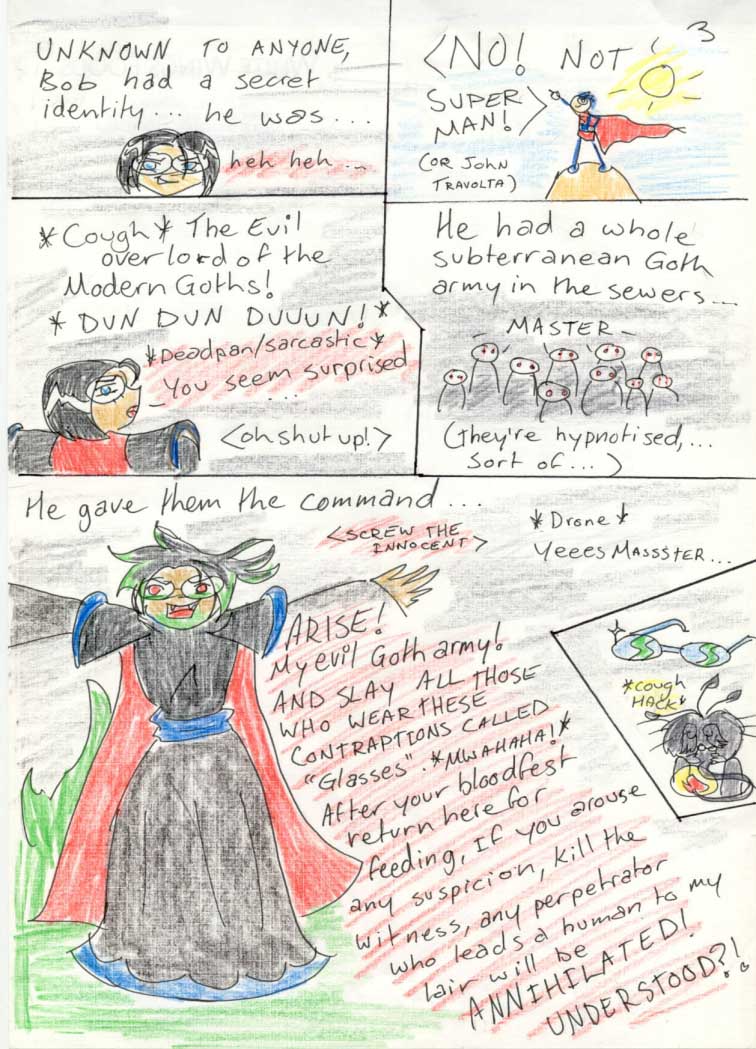 UNKNOWN TO ANYONE,
Bob had a secret
identity... he was...
heh heh...
3
<NO! NOT
SUPER
MAN!
(OR JOHN
TRAVOLTA)
*Cough* The Evil
overlord of the
Modern Goths!
* DUN DUN DUUUN! *
*Deadpan/sarcastic*
You seem surprised
...
<oh shut up!>
He had a whole
subterranean Goth
army in the sewers...
MASTER
(they're hypnotised,...
sort of...)
He gave them the command...
<SCREW THE
INNOCENT>
*Drone*
Yeees MASSSTER...
ARISE!
My evil Goth army!
AND SLAY ALL THOSE
WHO WEAR THESE
CONTRAPTIONS CALLED
"Glasses". *MWAHAHA!*
After your bloodfest
return here for
feeding, If you arouse
any suspicion, kill the
witness, any perpetrator
who leads a human to my
lair will be
ANNIHILATED!
UNDERSTOOD?!
*cough
HACK*